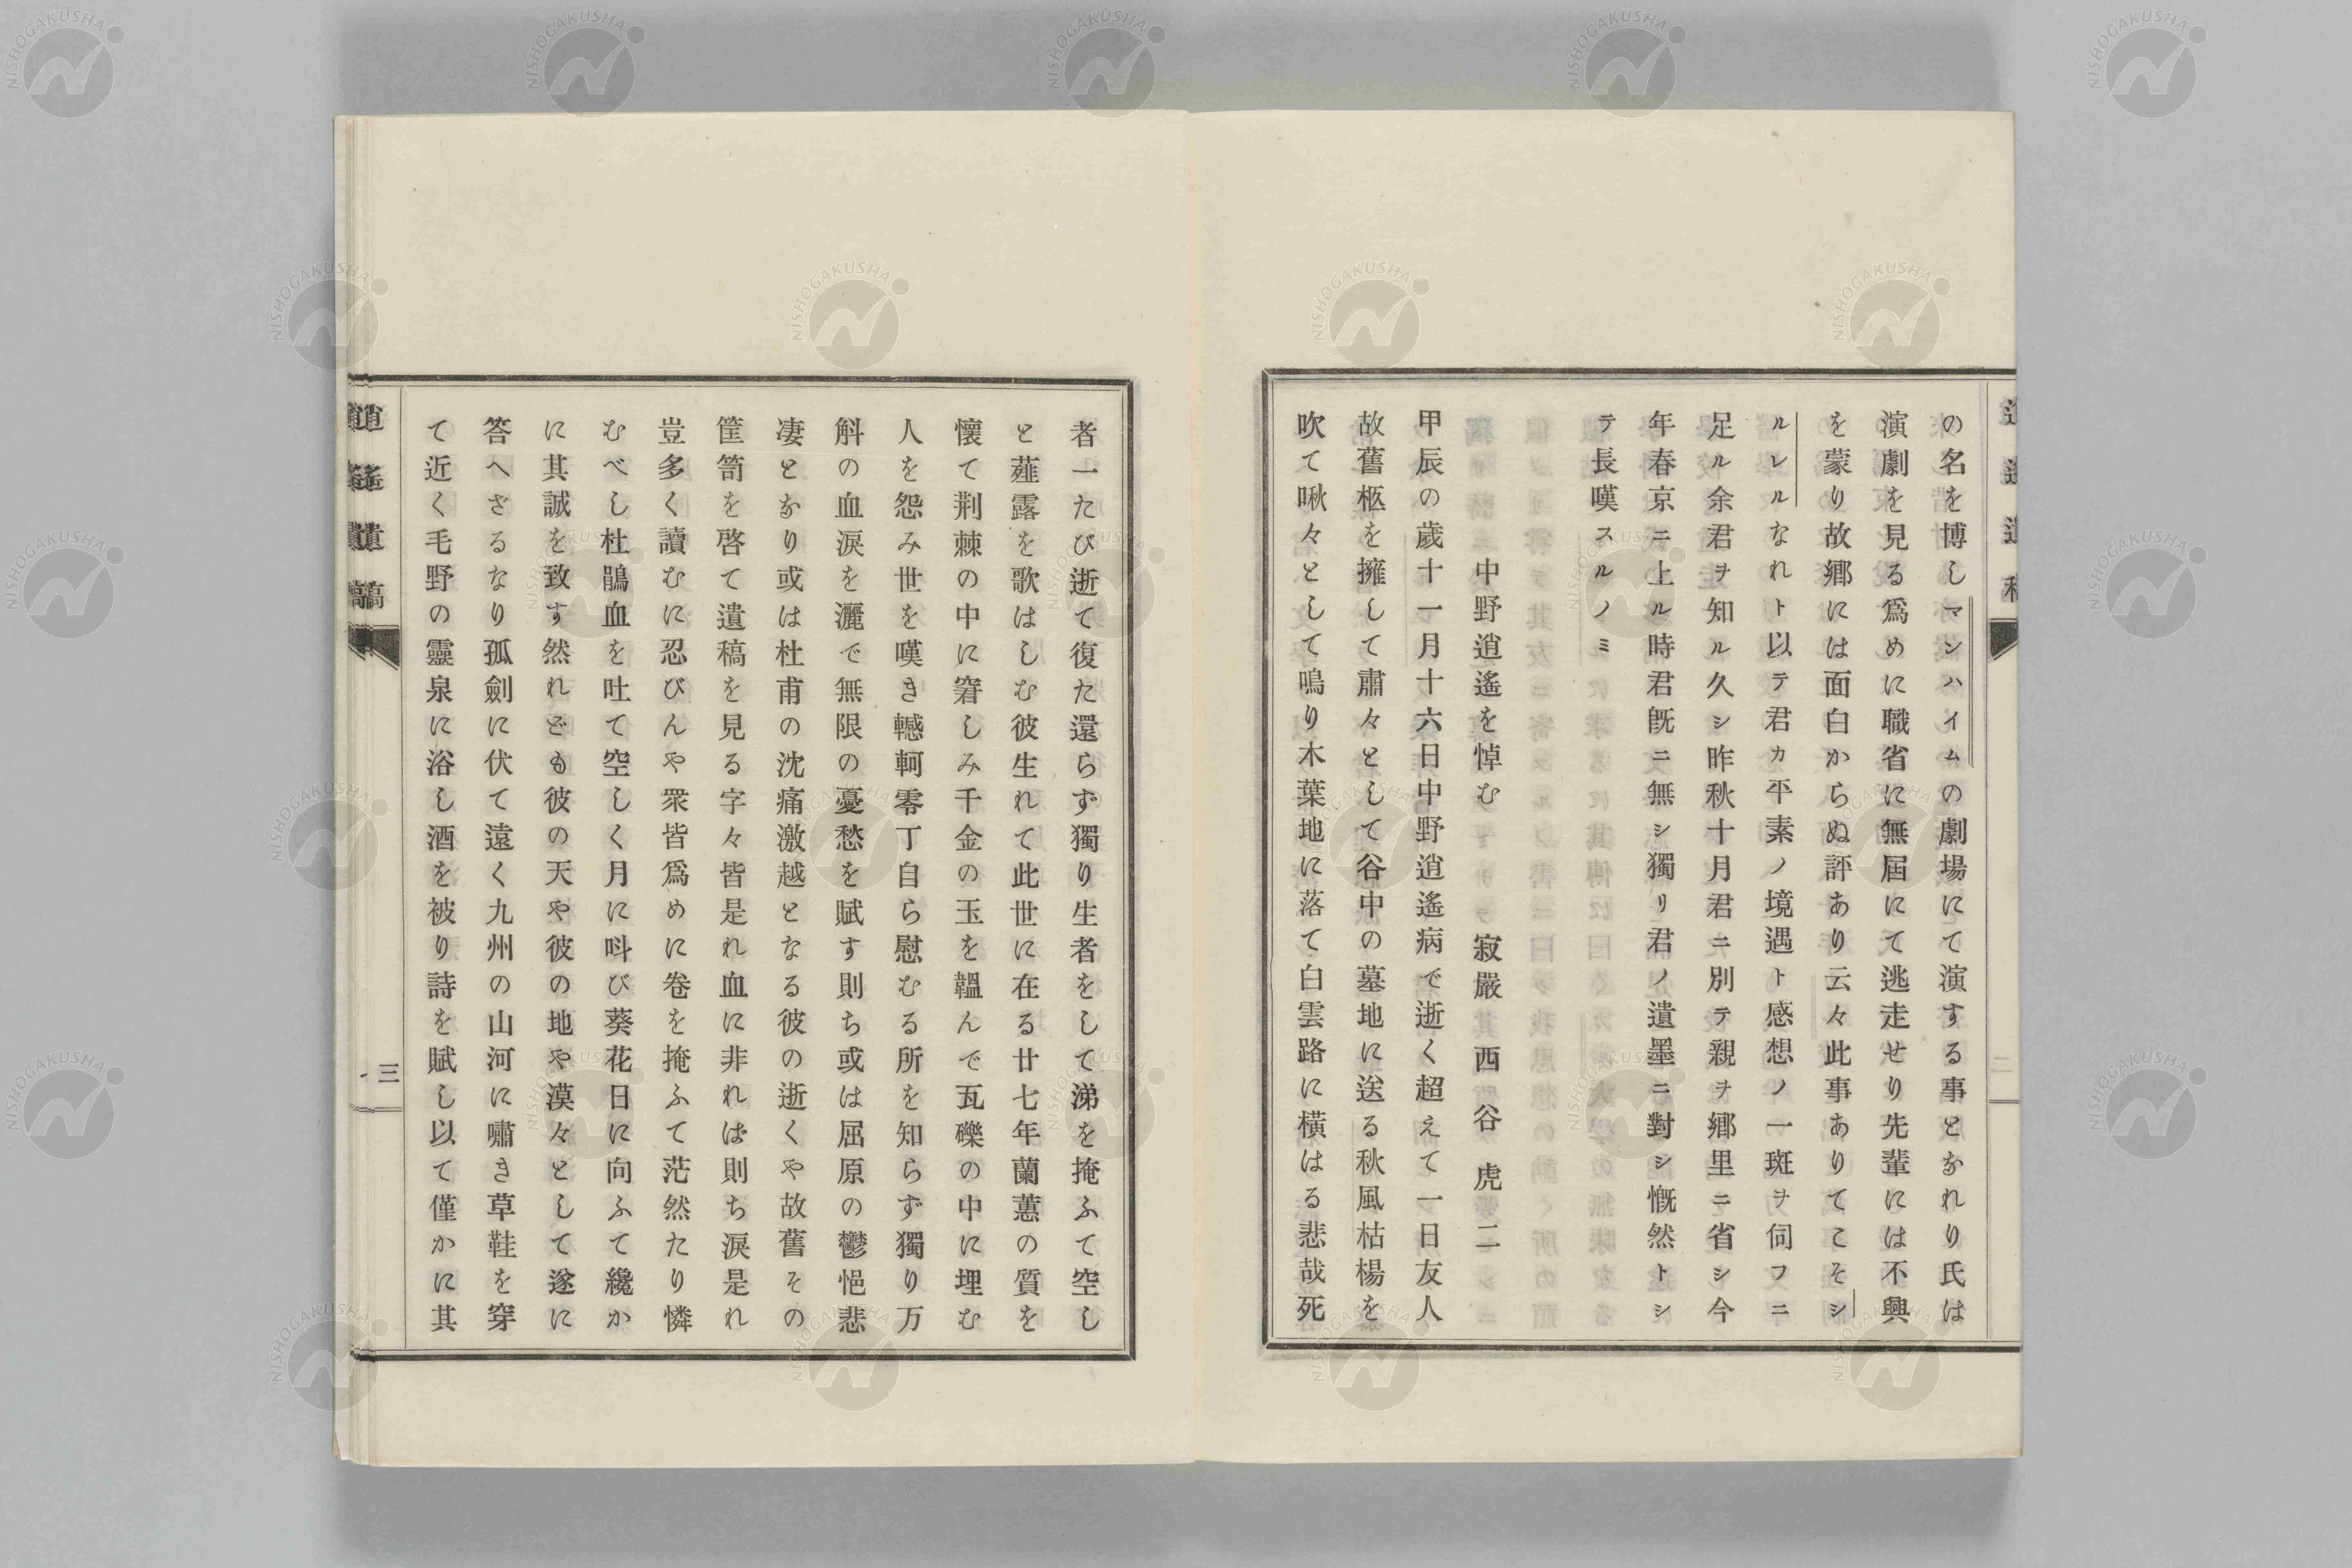 の名を博しマンハイムの劇場にて演する事となれり氏は
演劇を見る爲めに職省に無屆にて逃走せり先輩には不興
を蒙り故郷には面白からぬ評あり云々此事ありてこそシ
ルレルなれト以テ君カ平素ノ境遇ト感想ノ一斑ヲ伺フニ
足ル余君ヲ知ル久シ昨秋十月君ニ別テ親ヲ郷里ニ省シ今
年春京ニ上ル時君旣ニ無シ獨リ君ノ遺墨ニ對シ慨然トシ
テ長嘆スルノミ
中野逍遙を悼む 寂嚴 西谷虎二
甲辰の歲十一月十六日中野逍遙病で逝く超えて一日友人
故舊柩を擁して肅々として谷中の墓地に送る秋風枯楊を
吹て啾々として鳴り木葉地に落て白雲路に橫はる悲哉死
者一たび逝て復た還らず獨り生者をして涕を掩ふて空し
と薤露を歌はしむ彼生れて此世に在る廿七年蘭蕙の質を
懷て荆棘の中に窘しみ千金の玉を韞んで瓦礫の中に埋む
人を怨み世を嘆き轗軻零丁自ら慰むる所を知らず獨り万
斛の血淚を灑で無限の憂愁を賦す則ち或は屈原の鬱悒悲
凄となり或は杜甫の沈痛激越となる彼の逝くや故舊その
筐笥を啓て遺稿を見る字々皆是れ血に非れば則ち淚是れ
豈多く讀むに忍びんや衆皆爲めに卷を掩ふて茫然たり憐
むべし杜鵑血を吐て空しく月に呌び葵花日に向ふて纔か
に其誠を致す然れども彼の天や彼の地や漠々として遂に
答へざるなり孤劍に伏て遠く九州の山河に嘯き草鞋を穿
て近く毛野の靈泉に浴し酒を被り詩を賦し以て僅かに其
逍遙遺稿
三